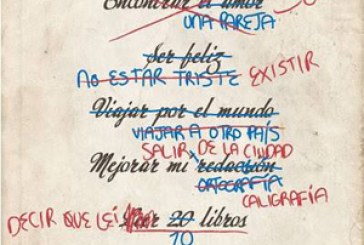 Encontrar el amor
UNA PAREJA
Ser feliz
NO ESTAR TRISTE EXISTIR
Viajar por el mundo
VIAJAR A OTRO PAÍS
SALIR DE LA CIUDAD
Mejorar mi redacción
ORTOGRAFÍA
CALIGRAFÍA
DECIR QUE LEÍ Leer 20 libros
10